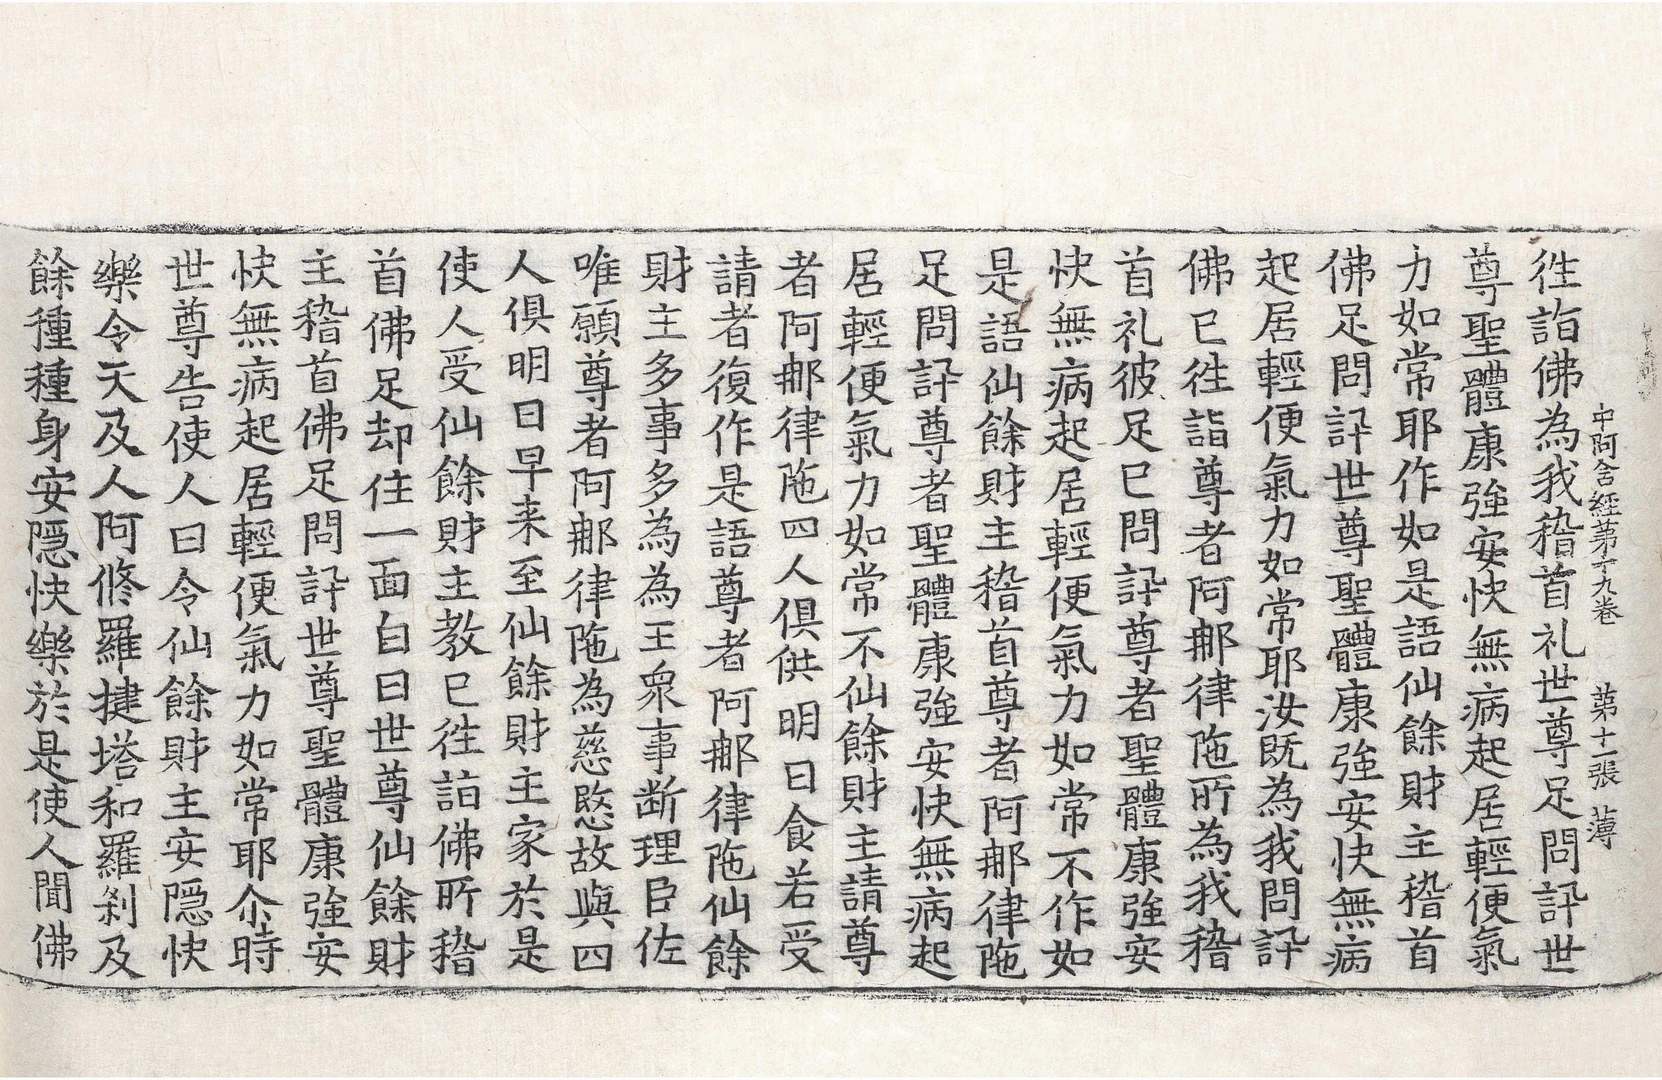 中阿含經苐十九卷　苐十一張　薄
徃詣佛為我稽首礼世尊足問訊世
尊聖體康強安快無病起居輕便氣
力如常耶作如是語仙餘財主稽首
佛足問訊世尊聖體康強安快無病
起居輕便氣力如常耶汝既為我問訊
佛已徃詣尊者阿郍律陁所為我稽
首礼彼足已問訊尊者聖體康強安
快無病起居輕便氣力如常不作如
是語仙餘財主稽首尊者阿郍律陁
足問訊尊者聖體康強安快無病起
居輕便氣力如常不仙餘財主請尊
者阿郍律陁四人俱供明日食若受
請者復作是語尊者阿郍律陁仙餘
財主多事多為為王衆事断理臣佐
唯願尊者阿郍律陁為慈愍故與四
人俱明日早来至仙餘財主家於是
使人受仙餘財主教已徃詣佛所稽
首佛足却住一面白曰世尊仙餘財
主稽首佛足問訊世尊聖體康強安
快無病起居輕便氣力如常耶尒時
世尊告使人曰令仙餘財主安隱快
樂令天及人阿修羅揵塔和羅刹及
餘種種身安隱快樂於是使人聞佛